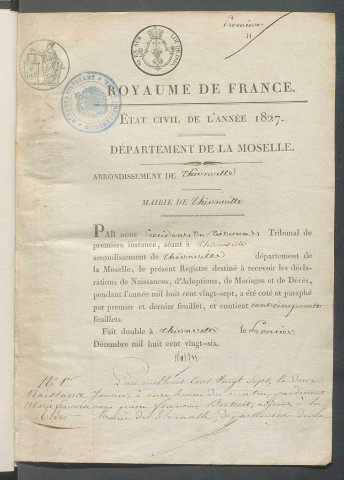 Première
ROYAUME DE FRANCE.
ÉTAT CIVIL DE L'ANNÉE 1827.
DÉPARTEMENT DE LA MOSELLE.
ARRONDISSEMENT DE Thionville
MAIRIE DE Thionville
PAR nous Président du Tribunal de
première instance, séant à Thionville
arrondissement de Thionville département de
la Moselle, le présent Registre destiné à recevoir les décla-
rations de Naissances, d'Adoptions, de Mariages et de Décès,
pendant l'année mil huit cent vingt-sept, a été coté et paraphé
par premier et dernier feuillet, et contient cent cinquante
feuillets.
Fait double à Thionville le Premier
Décembre mil huit cent vingt-six.
N.° 1er L'an mil huit cent vingt sept, le deux
Naissance Janvier, à onze heures du matin, pardevant
nous pierre